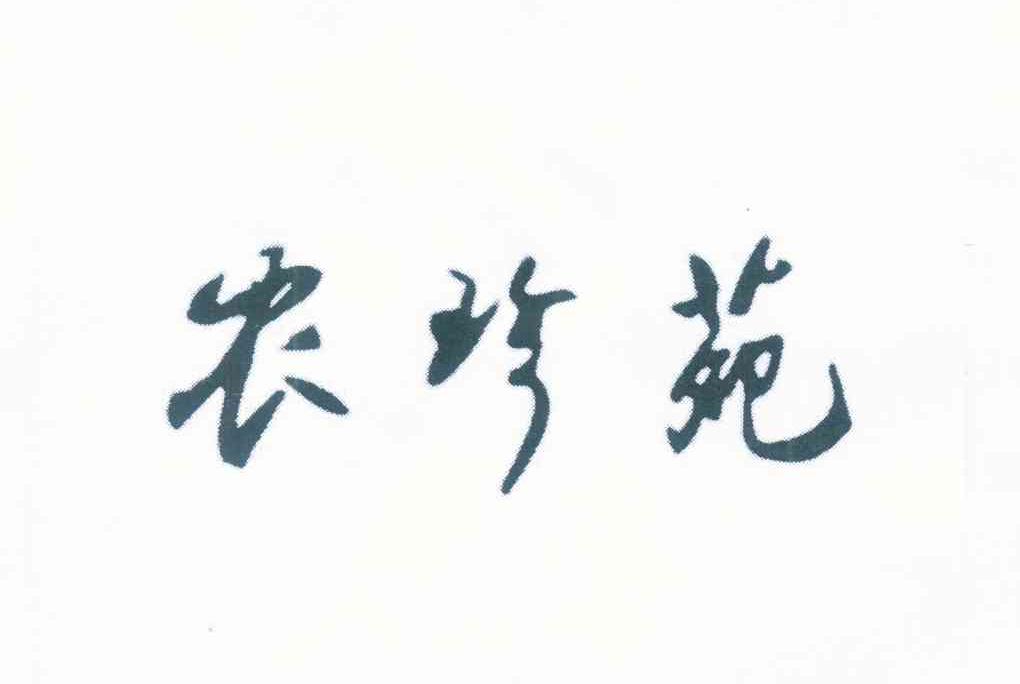 农珍苑